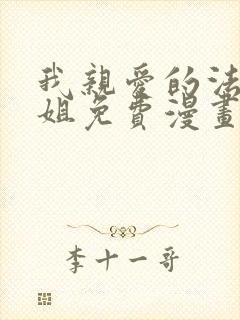 我親愛的法
姐免費漫畫
李十一哥